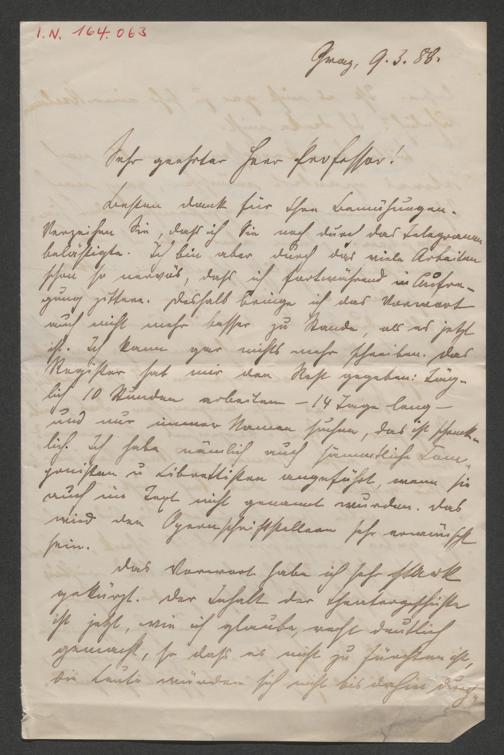 I.N. 164.063
Graz, 9.3.88.
Sehr geehrter Herr Professor!
Besten Dank für Ihre Bemühungen.
Verzeihen Sie, daß ich Sie noch durch das Telegramm
belästigte. Ich bin aber durch das viele Arbeiten
schon so nervös, daß ich fortwährend in Aufre-
gung zittere. Deshalb bringe ich das Vorwort
auch nicht mehr besser zu Stande, als es jetzt
ist. Ich kann gar nichts mehr schreiben. Das
Register hat mir den Rest gegeben: Täg-
lich 10 Stunden arbeiten – 14 Tage lang –
und nur immer Namen suchen, das ist schreck-
lich. Ich habe nämlich auch sämmtliche Com-
ponisten u Librettisten angeführt, wenn sie
auch im Text nicht genannt wurden. Das
wird den Opernschriftstellern sehr erwünscht
sein.
Das Vorwort habe ich sehr stark
gekürzt. Der Inhalt der Theatergeschichte
ist jetzt, wie ich glaube, recht deutlich
gemacht, so daß es nicht zu fürchten ist,
die Leute würden sich nicht bis dahin durch-